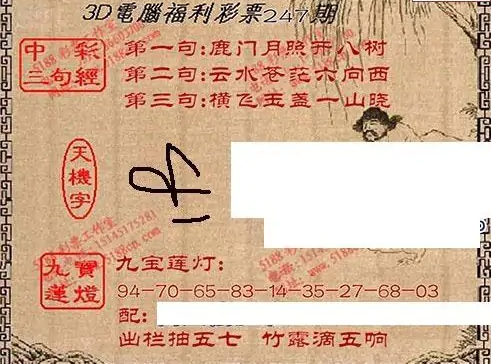 3D電腦福利彩票247期
中彩
三句經
第一句:鹿门月照开八树
第二句:云水苍茫六向西
第三句:横飞玉盏一山晓
天機字
九寶
蓮燈
九宝莲灯:
94-70-65-83-14-35-27-68-03
配:
出栏抽五七 竹露滴五响